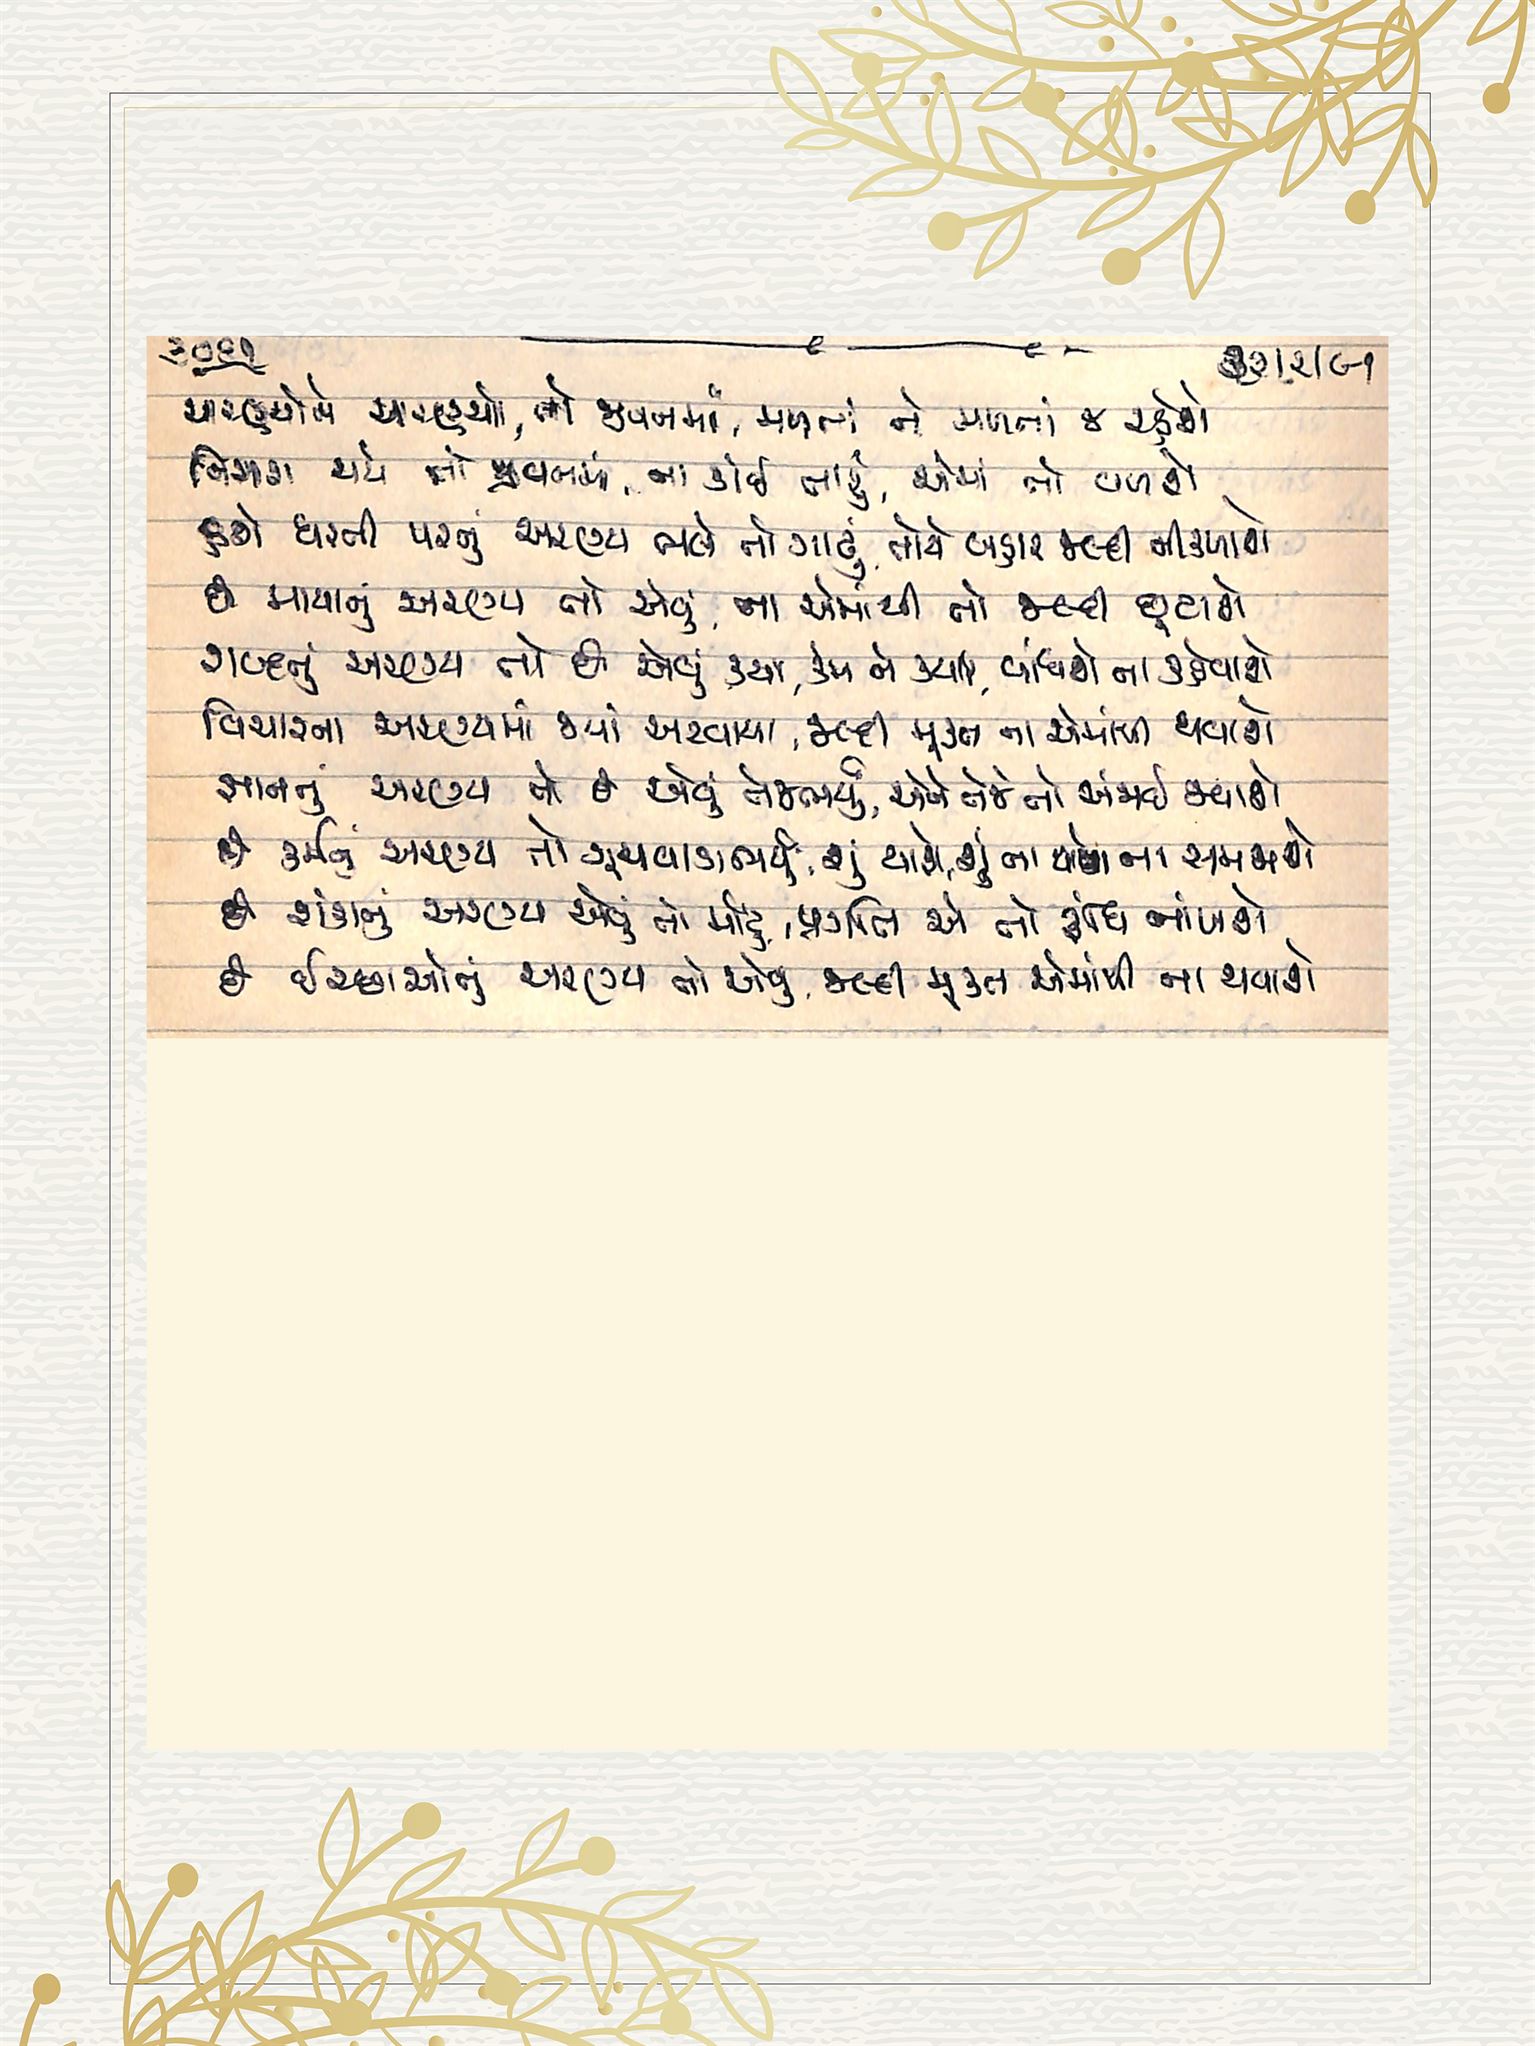 ૩૦૬૧
અરણ્યોને અરણ્યો, તો જીવનમાં, મળતાં ને મળતાં જ રહેશે
નિરાશ થયે તો જીવનમાં, ના કોઈ તારું, એમાં તો વળશે
હશે ધરતી પરનું અરણ્ય ભલે તો ગાઢું, તોયે બહાર જલ્દી નીકળાશે
છે માયાનું અરણ્ય તો એવું, ના એમાંથી તો જલ્દી છૂટાશે
શબ્દનું અરણ્ય તો છે એવું ક્યાં, કેમ ને ક્યારે, બાંધશે ના કહેવાશે
વિચારના અરણ્યમાં જ્યાં અટવાયા, જલ્દી મુક્ત ના એમાંથી થવાશે
જ્ઞાનનું અરણ્ય તો છે એવું તેજભર્યું, એને તેજે તો અંજાઈ જવાશે
છે કર્મનું અરણ્ય તો ગૂંચવાડાભર્યું, શું થાશે, શું ના થાશે ના સમજાશે
છે શંકાનું અરણ્ય એવું તો મોટું, પ્રગતિ એ તો રૂંધી નાંખશે
છે ઈચ્છાઓનું અરણ્ય તો એવું, જલ્દી મુક્ત એમાંથી ના થવાશે